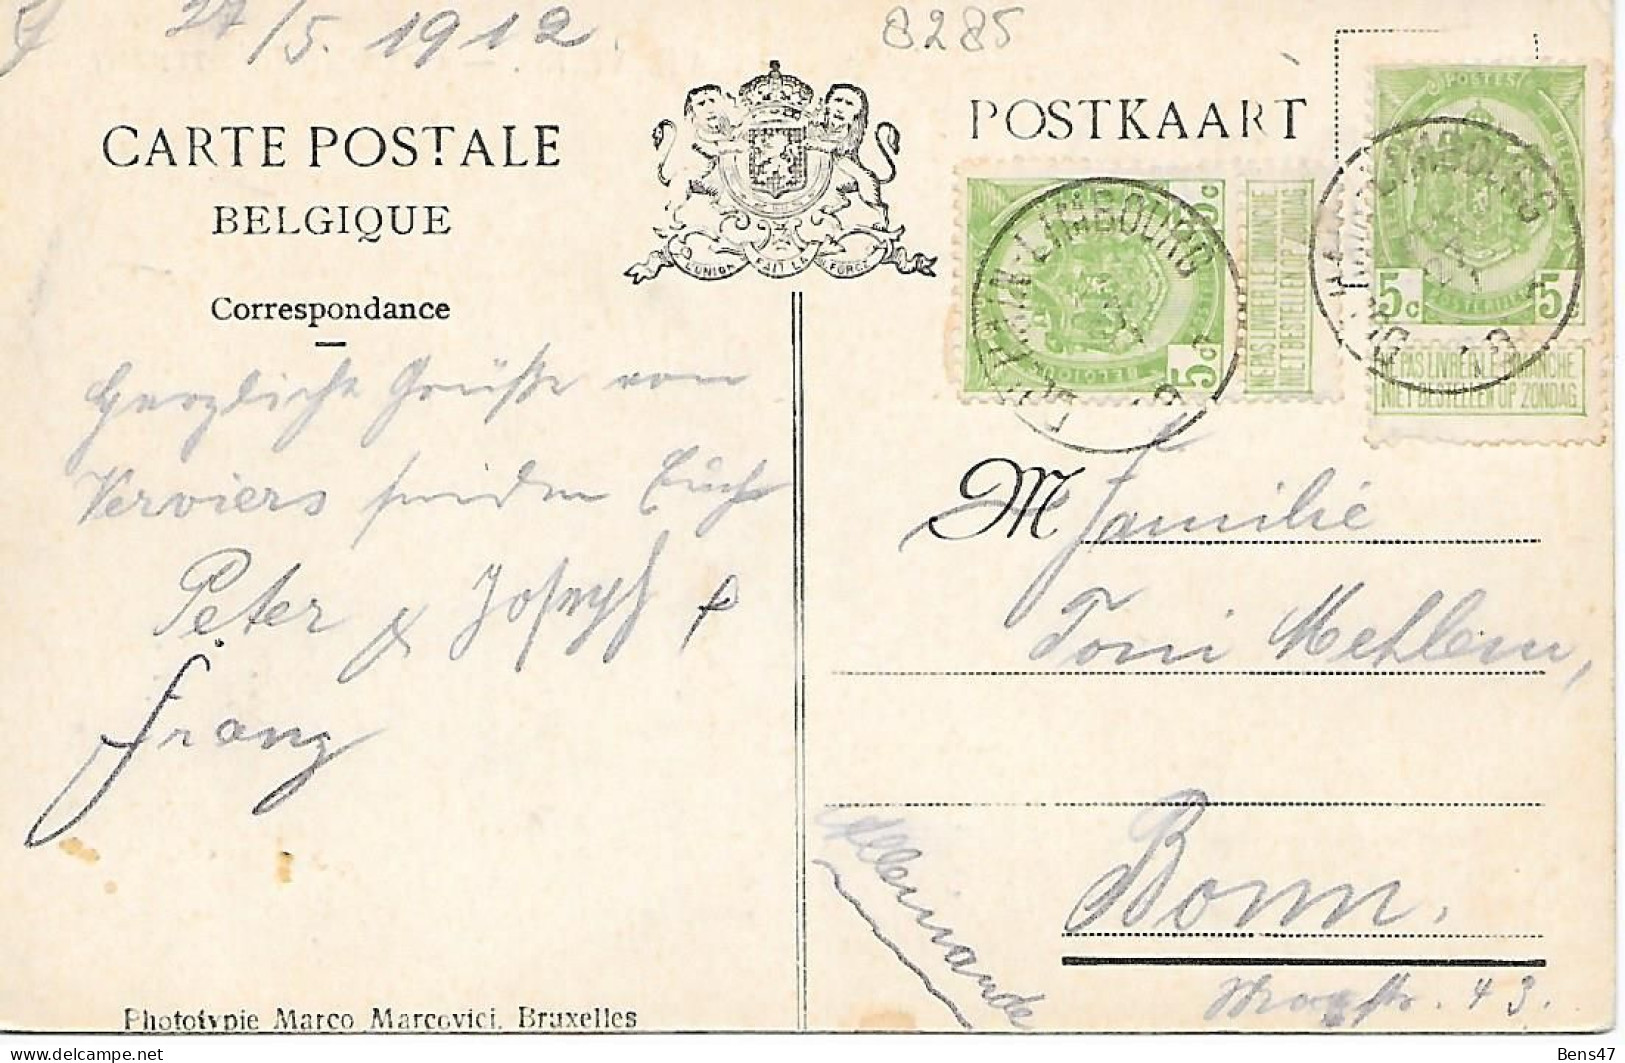 27/5. 1912.
8285
CARTE POSTALE
POSTKAART
BELGIQUE
L'UNION FAIT LA FORCE
Correspondance
POSTES
5c 5c
NE PAS LIVRER LE DIMANCHE
NIET BESTELLEN OP ZONDAG
5c 5c
NE PAS LIVRER LE DIMANCHE
NIET BESTELLEN OP ZONDAG
DOLHAIN-LIMBOURG
DOLHAIN-LIMBOURG
Herzliche Grüße von
Verviers senden Euch
Peter & Joseph &
Franz
M Familie
Toni Mehlem,
Bonn.
str. 43.
Allemande
Phototypie Marco Marcovici, Bruxelles
Bens47